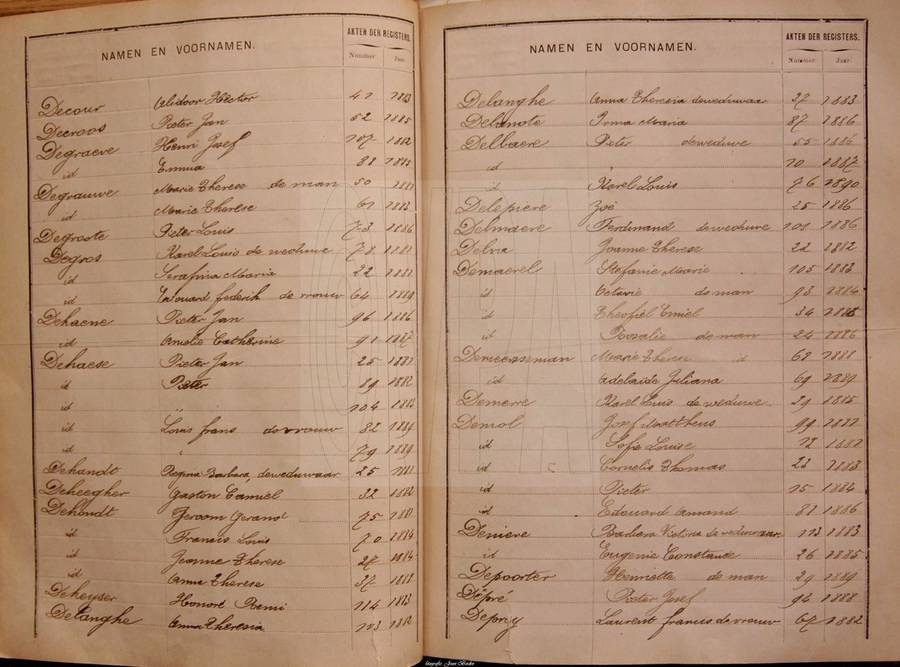 NAMEN EN VOORNAMEN.
AKTEN DER REGISTERS.
Nummer Jaar
Decour Alidoor Hector 41 1883
Decroos Pieter Jan 52 1885
Degraeve Henri Josef 107 1882
id Emma 88
Degrauwe Marie Therese de man 50 1881
id Marie Therese 61
Degroote Pieter Louis 73 1886
Degros Karel Louis de weduwe 78 1881
id Serafina Maria 22
id Edouard frederik de vrouw 64 1889
Dehaene Pieter Jan 96 1886
id Amelie Catherine 91 1887
Dehaese Pieter Jan 25
id Pieter 89 1882
id " 104 1883
id Louis frans de vrouw 82 1889
id 79 1889
Dehandt Regina Barbara, de weduwaar 25
Deheegher Gaston Camiel 32 1882
Dehondt Jeroom Gerand 75
id Francis Louis 70 1884
id Jeanne Therese 27 1884
id Anna Therese 37
Deheyser Honoré Remi 114 1883
Delanghe Anna Theresia 113 1882
NAMEN EN VOORNAMEN.
AKTEN DER REGISTERS.
Nummer Jaar.
Delanghe Anna Theresia de weduwaar 37 1883
Delanote Irma Maria 87 1886
Delbaere Pieter de weduwe 55 1886
id 10 1887
id Karel Louis 76 1890
Delepiere Zoé 25 1886
Delmaere Ferdinand de weduwe 101 1886
Delva Joanne Therese 22 1882
Demaerel Stefanie Marie 105 1883
id Octavie de man 93 1884
id Theofiel Emiel 34 1885
id Rosalie de man 24 1886
Demeersseman Marie Therese id 68 1888
id Adelaide Juliana 69 1889
Demerre Karel Louis de weduwe 29 1885
Demol Josef Mattheus 99
id Sofie Louise 12
id Cornelis Thomas 23 1883
id Pieter 15 1884
id Edouard Amand 81 1886
Deniere Barbara de weduwaar 113 1883
id Eugenie Constance 26 1885
Depoorter Henriette de man 29 1889
Dépré Pieter Josef 94 1888
Depuy Laurent francis de vrouw 67 1882